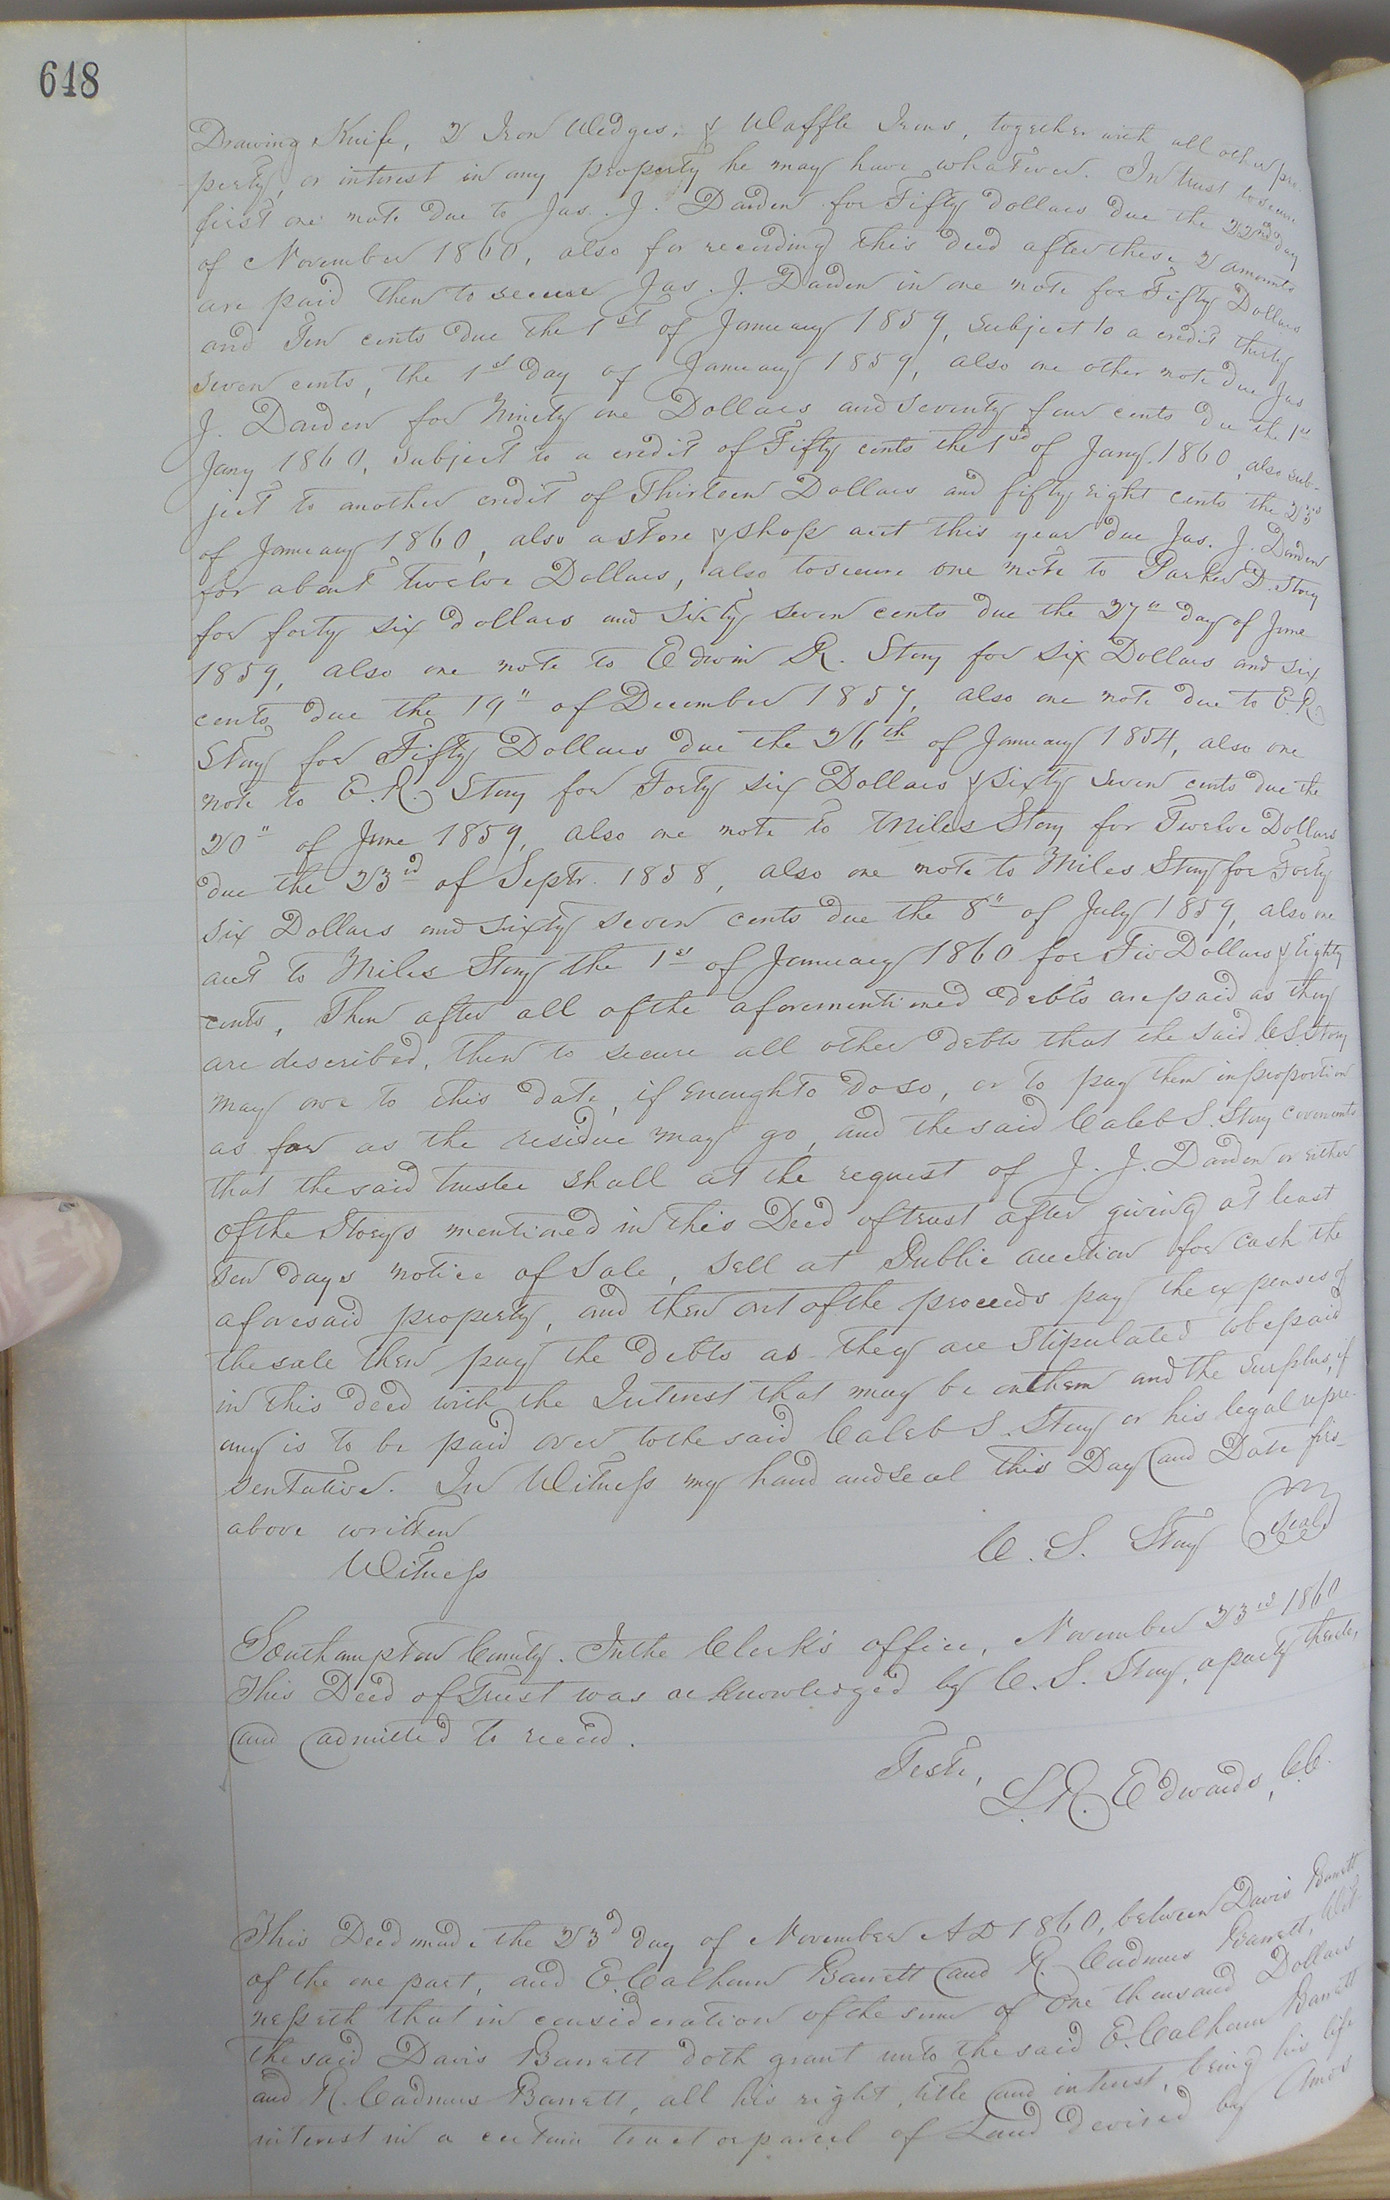 648
Drawing Knife, 2 Iron Wedges, & Waffle Irons, together with all other pro-
perty, or interest in any property he may have whatever. In trust to secure
first one note due to Jas. J. Darden for Fifty dollars due the 22nd day
of November 1860, also for recording this deed after these 2 amounts
are paid then to secure Jas. J. Darden in one note for Fifty Dollars
and Ten cents due the 1st of January 1859, subject to a credit thirty
seven cents, the 1st day of January 1859, also one other note due Jas
J. Darden for Ninety one Dollars and seventy four cents due the 1st
Jany 1860, subject to a credit of Fifty cents the 1st of Jany. 1860, also sub-
ject to another credit of Thirteen Dollars and fifty eight cents the 23rd
of January 1860, also a store & shop acct this year due Jas. J. Darden
for about Twelve Dollars, also to secure one note to Parker D. Story
for forty six dollars and sixty seven cents due the 27" day of June
1859, also one note to Edwin R. Story for six Dollars and six
cents due the 19" of December 1857, also one note due to E. R.
Story for Fifty Dollars due the 26th of January 1854, also one
note to E. R. Story for Forty six Dollars & sixty seven cents due the
20" of June 1859, also one note to Miles Story for Twelve Dollars
due the 23rd of Septr. 1858, also one note to Miles Story for Forty
six Dollars and sixty seven cents due the 8" of July 1859, also one
acct to Miles Story the 1st of January 1860 for Dollars & Eighty
cents, Then after all of the aforementioned debts are paid as they
are described, then to secure all other debts that the said C. S. Story
may owe to this date, if enough to do so, or to pay them in proportion
as far as the residue may go, and the said Caleb S. Story covenants
that the said trustee shall at the request of J. J. Darden or either
of the Storys mentioned in this Deed of trust after giving at least
ten days notice of Sale, sell at Public auction for cash the
aforesaid property, and then out of the proceeds pay the expenses of
the sale then pay the debts as they are stipulated to be paid
in this deed with the Interest that may be on them and the surplus, if
any is to be paid over to the said Caleb S. Story or his legal repre-
sentative. In Witness my hand and seal this Day and Date firs
above written
C. S. Story Seal
Witness
Southampton County. In the Clerk's office, November 23rd 1860
This Deed of Trust was acknowledged by C. S. Story, a party thereto,
and admitted to record.
Teste,
L. R. Edwards, C.C.
This Deed made the 23d day of November A D 1860, between Davis Barrett
of the one part, and E. Calhoun Barrett and R. Cadmus Barrett, Wit-
nesseth that in consideration of the sum of One thousand Dollars
the said Davis Barrett doth grant unto the said E. Calhoun Barrett
and R. Cadmus Barrett, all his right, title and interest, being his life
interest in a certain tract or parcel of Land devised by Amos